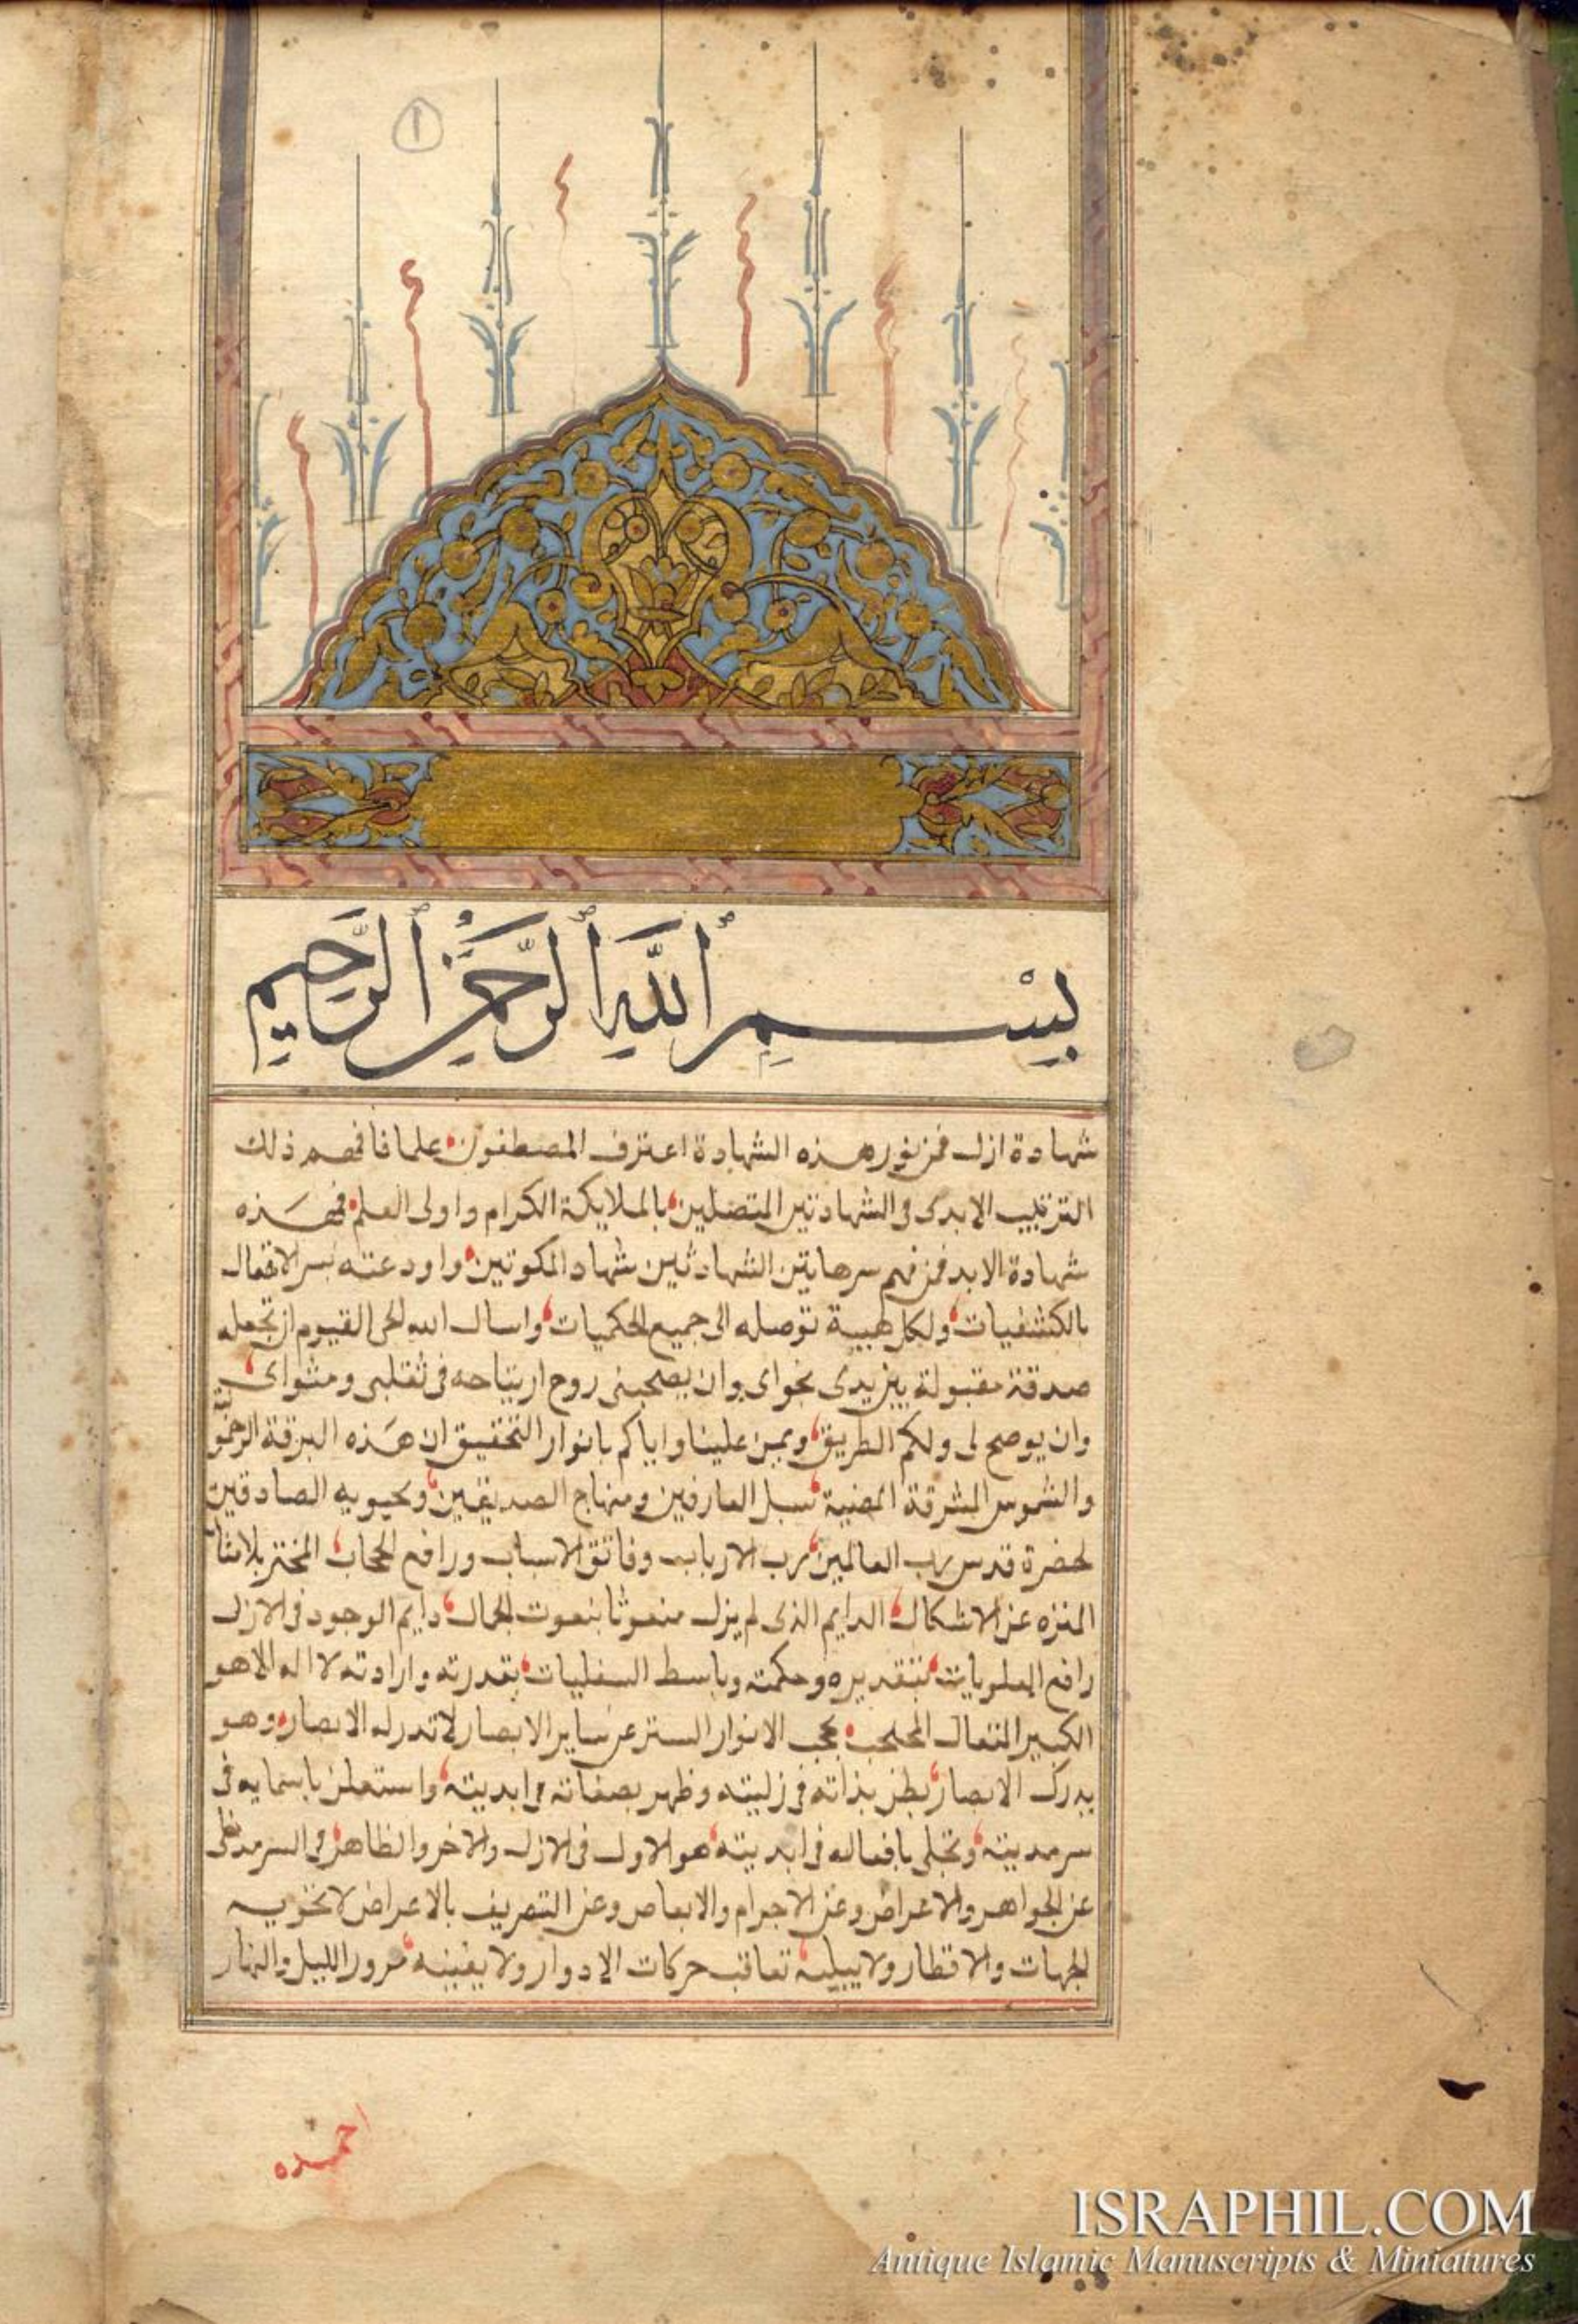 ١
بِسْمِ ٱللَّهِ ٱلرَّحْمَٰنِ ٱلرَّحِيمِ
شهادة ازل فمن نور هذه الشهادة اعترف المصطفون علما فافهم ذلك
الترتيب الابدى فى الشهادتين المتصلين بالملايكة الكرام واولى العلم فهذه
شهادة الابد فمن فهم سر هاتين الشهادتين شهاد المكوتين واودعته سر الافعال
بالكشفيات ولكل طيبة توصله الى جميع الحكميات واسال الله الحى القيوم ان تجعله
صدقة مقبولة بين يدى نجواى وان يصحبنى روح ارتياحه فى تقلبى ومثواى
وان يوصح لى ولكم الطريق ويمن علينا واياكم بانوار التحقيق ان هذه البرقة
والشموس المشرقة المضية سبل العارفين ومنهاج الصديقين ومحبوبه الصادقين
لحضرة قدس رب العالمين رب الارباب وفاتق الاسباب ورافع الحجاب بلامثا
المنزه عن الاشكال الدايم الذى لم يزل منعوتا بنعوت الجمال دايم الوجود فى الازل
رافع العلويات بتقديره وحكمته وباسط السفليات بقدرته وارادته لا اله الا هو
الكبير المتعال بحجب الانوار الستر عن ساير الابصار لا تدركه الابصار وهو
يدرك الابصار بطن بذاته فى زليته وظهر بصفاته فى ابديته واستعلن باسمايه فى
سرمديته وتجلى بافعاله فى ابديته هو الاول فى الازل والاخر والظاهر فى السرمد
عن الجواهر والاعراض وعن الاجرام والابعاض وعن التصريف بالاعراض لا تحويه
الجهات والاقطار ولا يبليه تعاقب حركات الادوار ولا يفنيه مرور الليل والنهار
احمده
ISRAPHIL.COM
Antique Islamic Manuscripts & Miniatures